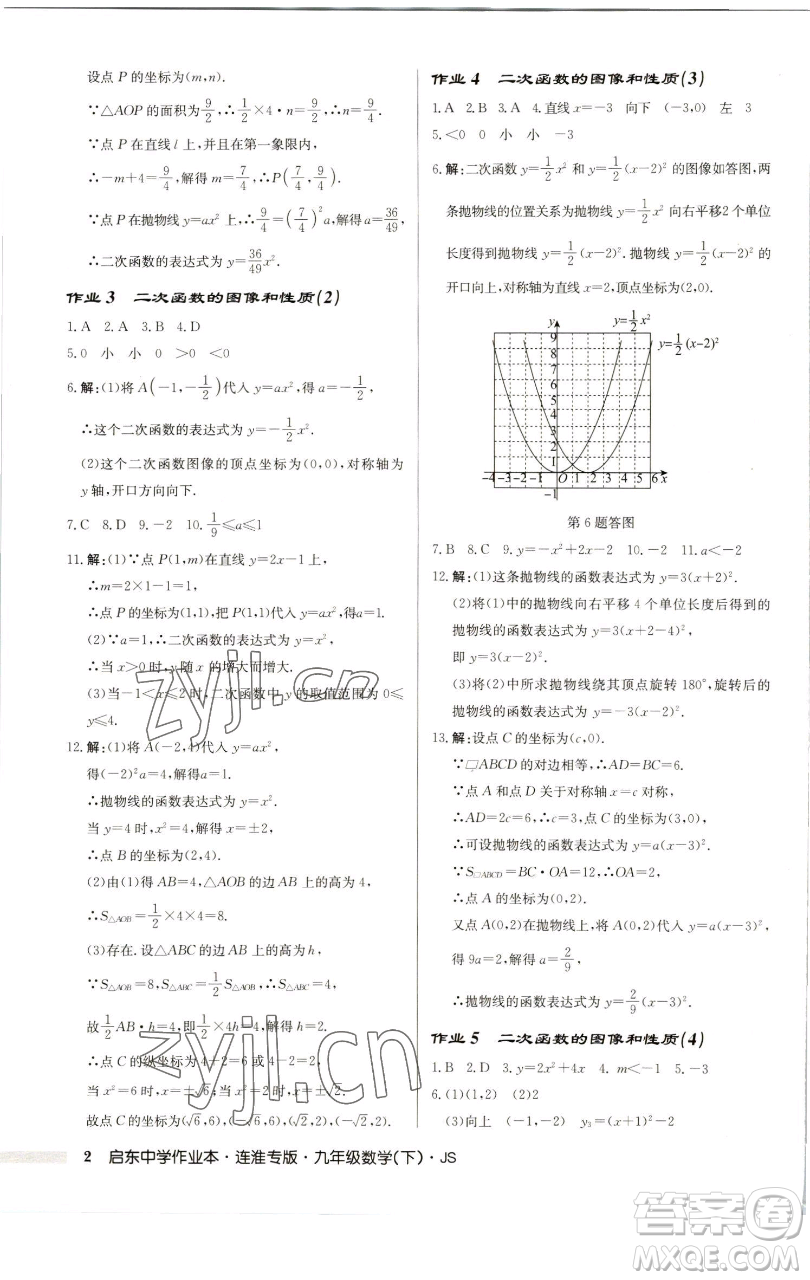 设点 P 的坐标为(m,n).
∵△AOP 的面积为9/2,∴1/2×4·n=9/2,∴n=9/4.
∵点 P 在直线 l 上,并且在第一象限内,
∴-m+4=9/4,解得 m=7/4,∴P(7/4,9/4).
∵点 P 在抛物线 y=ax² 上,∴9/4=(7/4)²a,解得a=36/49,
∴二次函数的表达式为 y=36/49x².
作业 3 二次函数的图像和性质(2)
1.A 2.A 3.B 4.D
5.0 小 小 0 >0 <0
6.解:(1)将 A(-1,-1/2)代入 y=ax²,得 a=-1/2,
∴这个二次函数的表达式为 y=-1/2x².
(2)这个二次函数图像的顶点坐标为(0,0),对称轴为
y 轴,开口方向向下.
7.C 8.D 9.-2 10.1/9≤a≤1
11.解:(1)∵点 P(1,m)在直线 y=2x-1 上,
∴m=2×1-1=1,
∴点 P 的坐标为(1,1),把 P(1,1)代入 y=ax²,得a=1.
(2)∵a=1,∴二次函数的表达式为 y=x²,
∴当 x>0 时,y 随 x 的增大而增大.
(3)当-1<x≤2 时,二次函数中 y 的取值范围为 0≤
y≤4.
12.解:(1)将 A(-2,4)代入 y=ax²,
得(-2)²a=4,解得 a=1,
∴抛物线的函数表达式为 y=x².
当 y=4 时,x²=4,解得 x=±2,
∴点 B 的坐标为(2,4).
(2)由(1)得 AB=4,△AOB 的边 AB 上的高为 4,
∴S△AOB=1/2×4×4=8.
(3)存在.设△ABC 的边 AB 上的高为 h,
∵S△AOB=8,S△ABC=1/2S△AOB,∴S△ABC=4,
故1/2AB·h=4,即1/2×4h=4,解得 h=2.
∴点 C 的纵坐标为 4+2=6 或 4-2=2.
当 x²=6 时,x=±√6;当 x²=2 时,x=±√2.
故点 C 的坐标为(√6,6),(-√6,6),(√2,2),(-√2,2).
作业 4 二次函数的图像和性质(3)
1.A 2.B 3.A 4.直线 x=-3 向下 (-3,0) 左 3
5.<0 0 小 小 -3
6.解:二次函数 y=1/2x² 和 y=1/2(x-2)² 的图像如答图,两
条抛物线的位置关系为抛物线 y=1/2x² 向右平移2 个单位
长度得到抛物线 y=1/2(x-2)². 抛物线 y=1/2(x-2)² 的
开口向上,对称轴为直线 x=2,顶点坐标为(2,0).
y y=1/2x²
y=1/2(x-2)²
9
8
7
6
5
4
3
2
1
-4 -3 -2 -1 O 1 2 3 4 5 6 x
-1
第 6 题答图
7.B 8.C 9.y=-x²+2x-2 10.-2 11.a<-2
12.解:(1)这条抛物线的函数表达式为 y=3(x+2)².
(2)将(1)中的抛物线向右平移 4 个单位长度后得到的
抛物线的函数表达式为 y=3(x+2-4)²,
即 y=3(x-2)².
(3)将(2)中所求抛物线绕其顶点旋转 180°,旋转后的
抛物线的函数表达式为 y=-3(x-2)².
13.解:设点 C 的坐标为(c,0).
∵▱ABCD 的对边相等,∴AD=BC=6.
∵点 A 和点 D 关于对称轴 x=c 对称,
∴AD=2c=6,∴c=3,点 C 的坐标为(3,0),
∴可设抛物线的函数表达式为 y=a(x-3)².
∵S▱ABCD=BC·OA=12,∴OA=2,
∴点 A 的坐标为(0,2).
又点 A(0,2)在抛物线上,将 A(0,2)代入 y=a(x-3)²,
得 9a=2,解得 a=2/9,
∴抛物线的函数表达式为 y=2/9(x-3)².
作业 5 二次函数的图像和性质(4)
1.B 2.D 3.y=2x²+4x 4.m<-1 5.-3
6.(1)(1,2) (2)2
(3)向上 (-1,-2) y₃=(x+1)²-2
2 启东中学作业本·连淮专版·九年级数学(下)·JS
zyjl.cn
zyjl.cn
答案圈
MXQE.COM